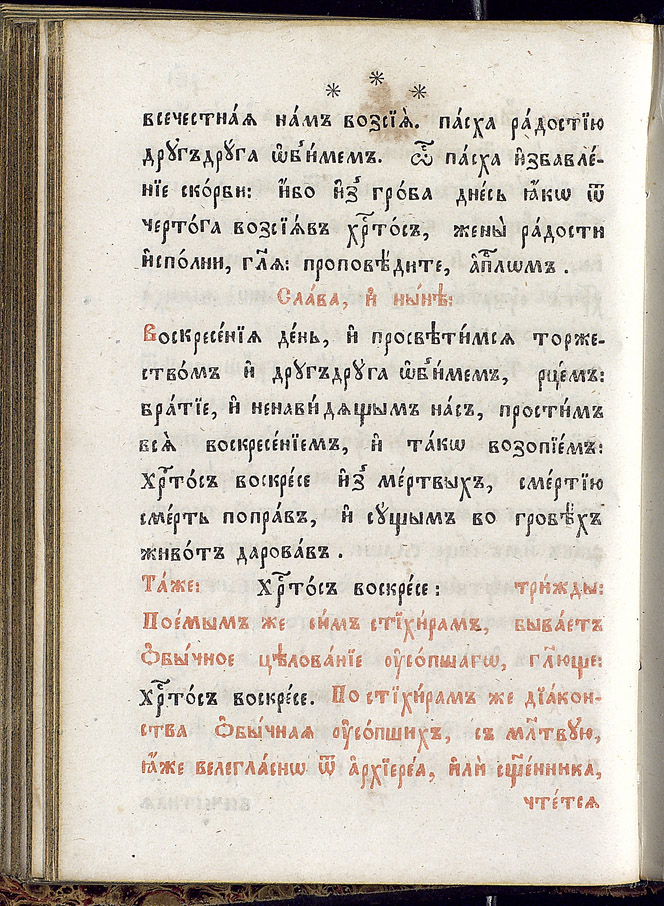 * * *
всечестна́ѧ на́мъ возсїѧ̀. па́сха ра́достїю
дрꙋ́гъдрꙋга ѡ҆бы́мемъ. ѽ па́сха и҆збавле́-
нїе ско́рби: и҆́бо и҆з̾ гро́ба дне́сь ꙗ҆́кѡ ѿ
черто́га возсїѧ́въ хрⷭ҇то́съ, жены̀ ра́дости
и҆спо́лни, гл҃ѧ: проповѣ́дите, а҆пⷭ҇лѡмъ.
Сла́ва, и҆ ны́нѣ:
Воскресе́нїѧ де́нь, и҆ просвѣти́мсѧ торже-
ство́мъ и҆ дрꙋ́гъдрꙋга ѡ҆бы́мемъ, рце́мъ:
бра́тїе, и҆ ненави́дѧщымъ на́съ, прости́мъ
всѧ̀ воскресе́нїемъ, и҆ та́кѡ возопїе́мъ:
Хрⷭ҇то́съ воскре́се и҆з̾ ме́ртвыхъ, сме́ртїю
сме́рть попра́въ, и҆ сꙋ́щымъ во гробѣ́хъ
живо́тъ дарова́въ.
Та́же: Хрⷭ҇то́съ воскре́се: три́жды:
Пое́мымъ же си̑мъ стїхи́рамъ, быва́етъ
Ѻ҆бы́чное цѣлова́нїе ᲂу҆со́пшагѡ, гл҃юще:
Хрⷭ҇то́съ воскре́се. По стїхи́рамъ же дїа́кон-
ства Ѻ҆бы́чнаѧ ᲂу҆со́пшихъ, съ мл҃твꙋю,
ꙗ҆́же велегла́снѡ ѿ а҆рхїере́а, и҆лѝ сщ҃е́нника,
чте́тсѧ